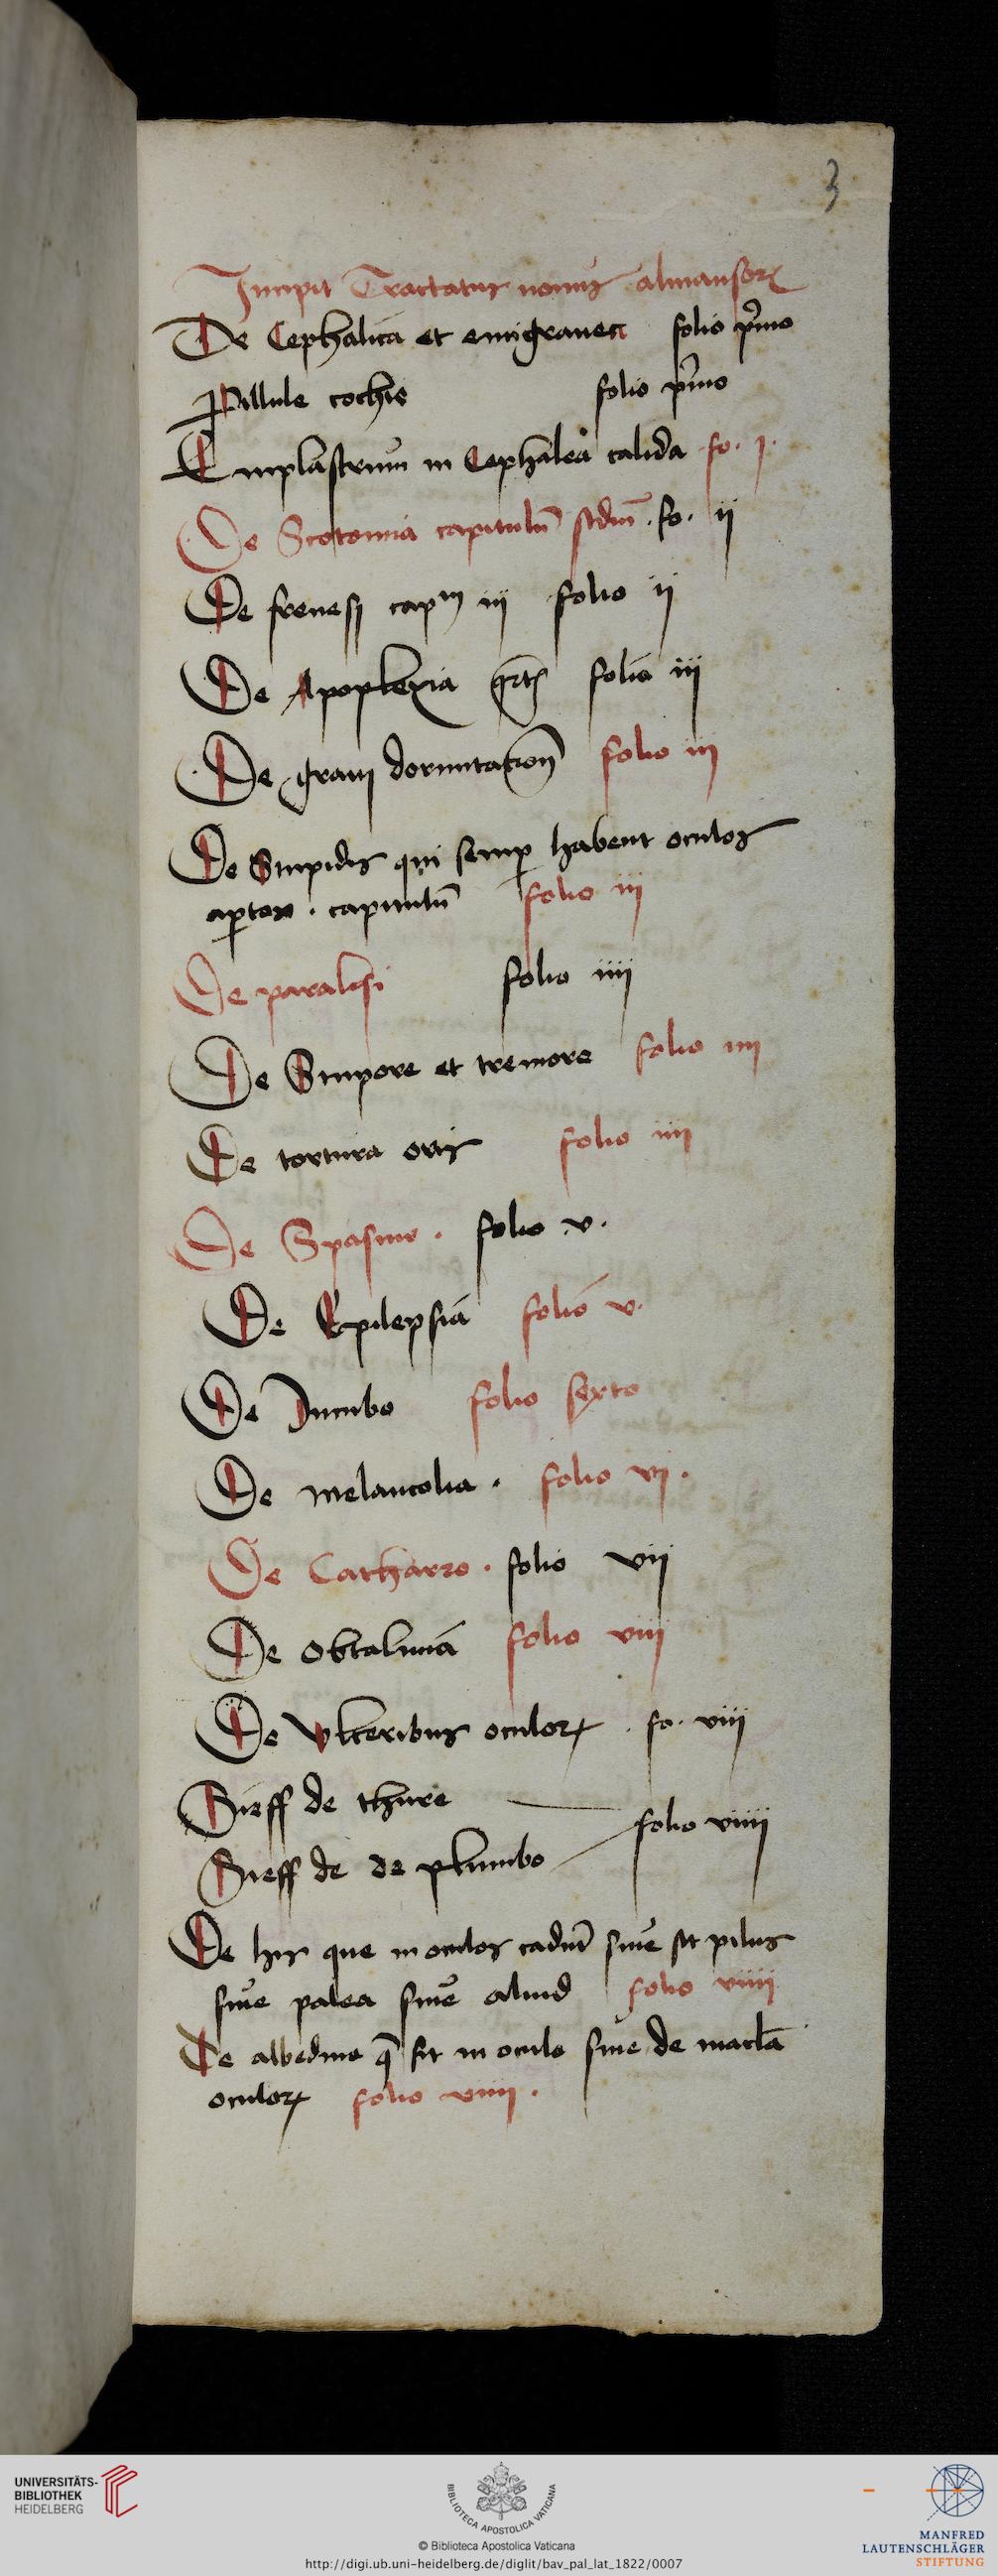 3
Incipit Tractatus nonus almansorꝝ
De Cephalica et emigranea folio pͥmo
Pillule cochie folio pͥmo
Emplastrum in Cephalea calida fo. j.
De Scotomia capitulū scdm̄ . fo. ij
De frenesi capᵐ iij folio ij
De Apoplexia folio iij
De graui dormitacion̄ folio iij
De Stupidis qui semꝑ habent oculos
aꝑtos . capitulū folio iij
De paralisi folio iiij
De Stupore et tremore folio iiij
De tortura oris folio iiij
De Spasmo . folio v.
De Epilepsia folio v.
De Incubo folio sexto
De melancolia . folio vj .
De Catharro . folio vij
De Obtalmia folio viij
De Vlceribus oculoꝝ . fo. viij
Sieff de thure
folio viiij
Sieff de de plumbo
De his que in oculos cadūt siue sit pilus
siue palea siue aliud folio viiij
De albedine q̄ fit in oculo siue de macl̄a
oculoꝝ folio viiij .
UNIVERSITÄTS-
BIBLIOTHEK
HEIDELBERG
BIBLIOTECA APOSTOLICA VATICANA
© Biblioteca Apostolica Vaticana
http://digi.ub.uni-heidelberg.de/diglit/bav_pal_lat_1822/0007
MANFRED
LAUTENSCHLÄGER
STIFTUNG